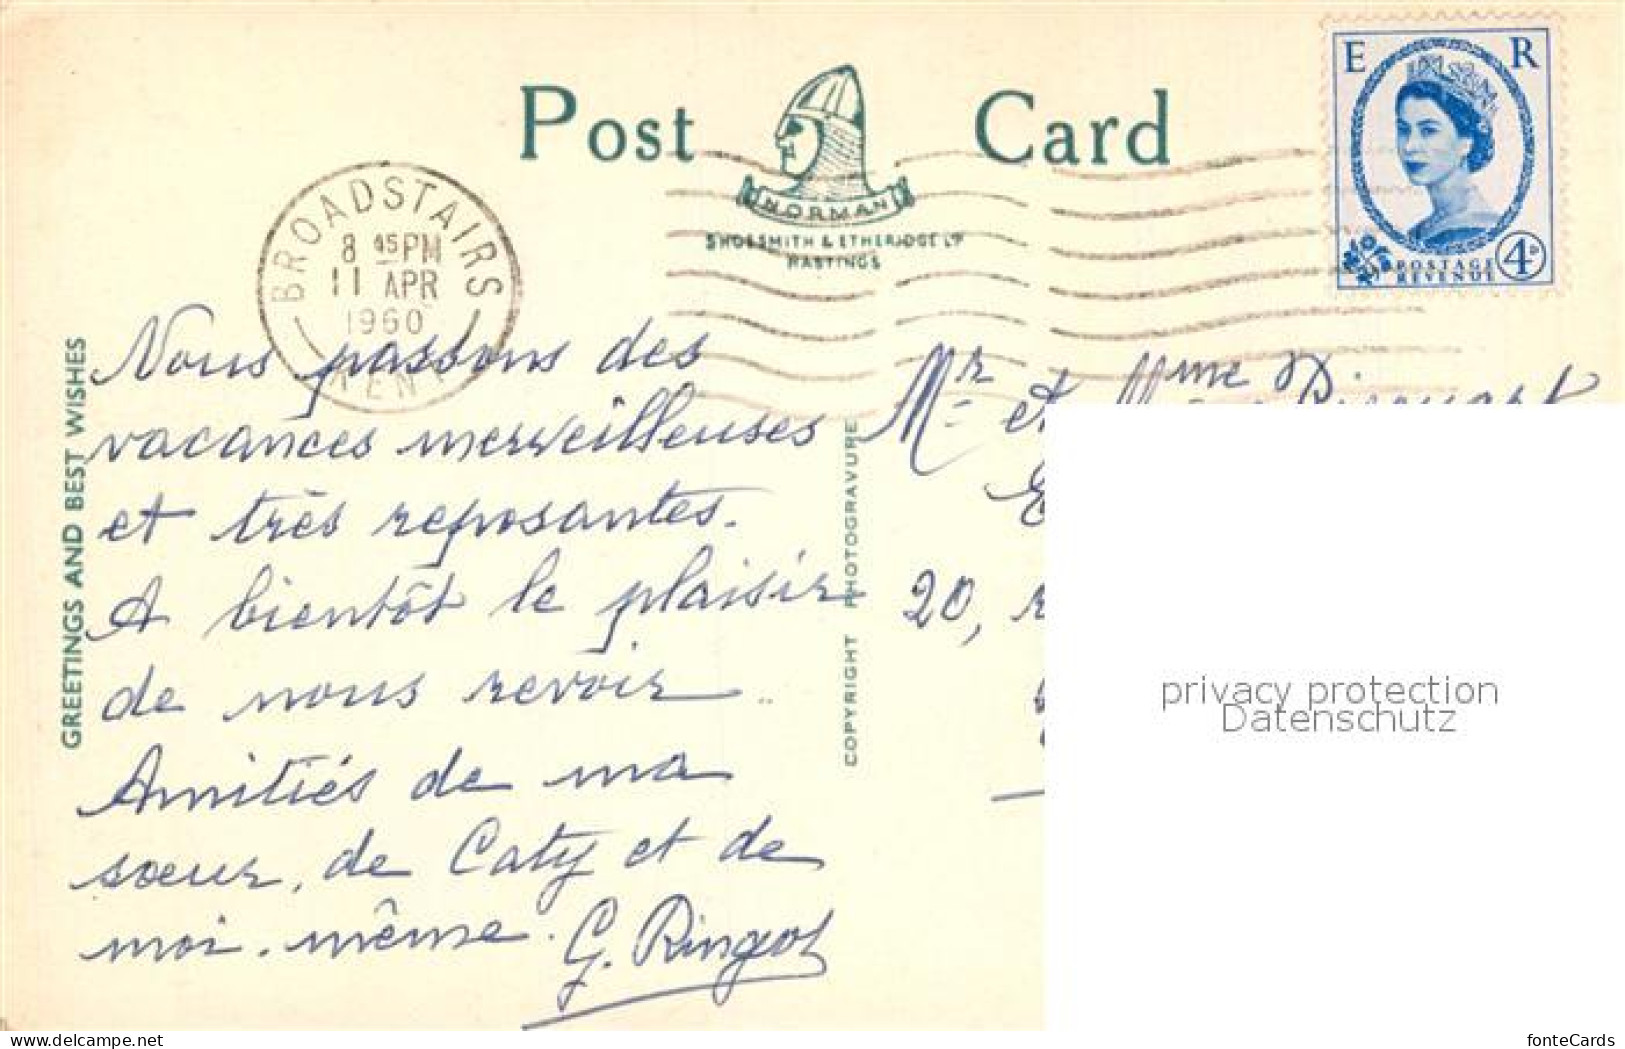 Post Card
NORMAN
SHOESMITH & ETHERIDGE LTD
HASTINGS
E R
POSTAGE
REVENUE
4D
BROADSTAIRS
8 45 PM
11 APR
1960
KENT
GREETINGS AND BEST WISHES
COPYRIGHT PHOTOGRAVURE
Nous passons des
vacances merveilleuses
et très reposantes.
A bientôt le plaisir
de nous revoir..
Amitiés de ma
sœur, de Caty et de
moi-même. G. Ringot
Mr et Mme
20,
privacy protection
Datenschutz
www.delcampe.net
fonteCards